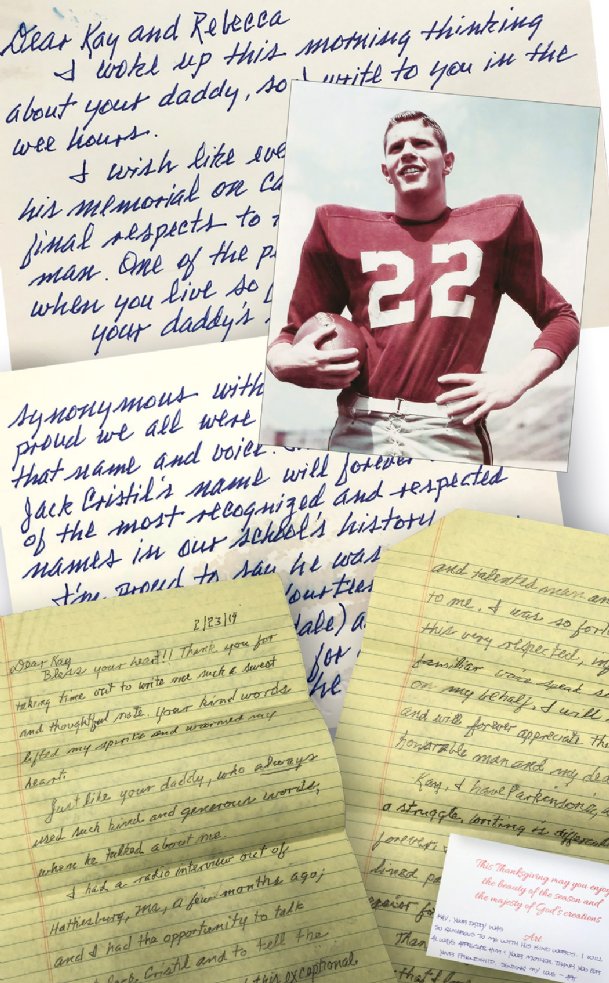 Dear Kay and Rebecca
I woke up this morning thinking
about your daddy, so I write to you in the
wee hours.
I wish like eve
his memorial on Ca
final respects to
man. One of the p
when you live so
your daddy's
22
synonymous with
proud we all were
that name and voice.
Jack Cristil's name will forever
of the most recognized and respected
names in our school's history
I'm proud to say he was
ourties
dale) a
for
he
8/23/19
Dear Kay
Bless your heart!! Thank you for
taking time out to write me such a sweet
and thoughtful note. Your kind words
lifted my spirits and warmed my
heart.
Just like your daddy, who always
used such kind and generous words,
when he talked about me.
I had a radio interview out of
Hattiesburg, Ms, a few months ago;
and I had the opportunity to talk
Cristil and to tell the
this exceptional
and talented mean an
to me. I was so fort
this very respected, my
familiar voice speak s
on my behalf. I will
and will forever appreciate th
honorable man and my dea
Kay, I have Parkinsons, a
a struggle, writing is difficul
forever
lined pa
easier fo
Than
that I
This Thanksgiving may you enjoy
the beauty of the season and
the majesty of God's creations
Art
Kay, your daddy was
so generous to me with his kind words. I will
always appreciate him & your mother. Thank you for
your friendship. Sending my love - Art